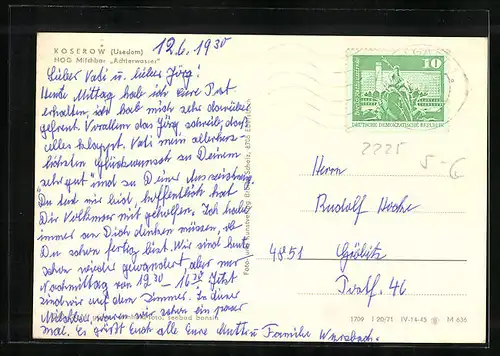 KOSEROW (Usedom)
HOG Milchbar „Achterwasser"
12.6. 1930
Lieber Vati u. lieber Jörg!
Heute Mittag hab ich Eure Post
erhalten, und hab mich sehr darüber
gefreut. Vor allem das Jörg schreib, das
alles klappt. Vati mein allerherz-
lichsten Glückwunsch zu Deinem
"sehr gut" und zu Deiner Auszeichnung
Du bist, hoffentlich hat
Dir Volkmar mit geholfen. Ich habe
immer an Dich denken müssen, ob
Du schon fertig bist. Wir sind heute
schon wieder gewandert, aber nur
Nachmittag von 12 30 - 16 30. Jetzt
sind wir auf dem Zimmer. In dieser
Milchbar waren wir schon ein paar
mal. Es grüßt Euch alle Eure Mutti u. Familie
10
DEUTSCHE DEMOKRATISCHE REPUBLIK
2225
5-G
Herrn
Rudolf
4851 Göblitz
Postf. 46
seebad bansin
1799 I 20/71 IV-14-45 M 635